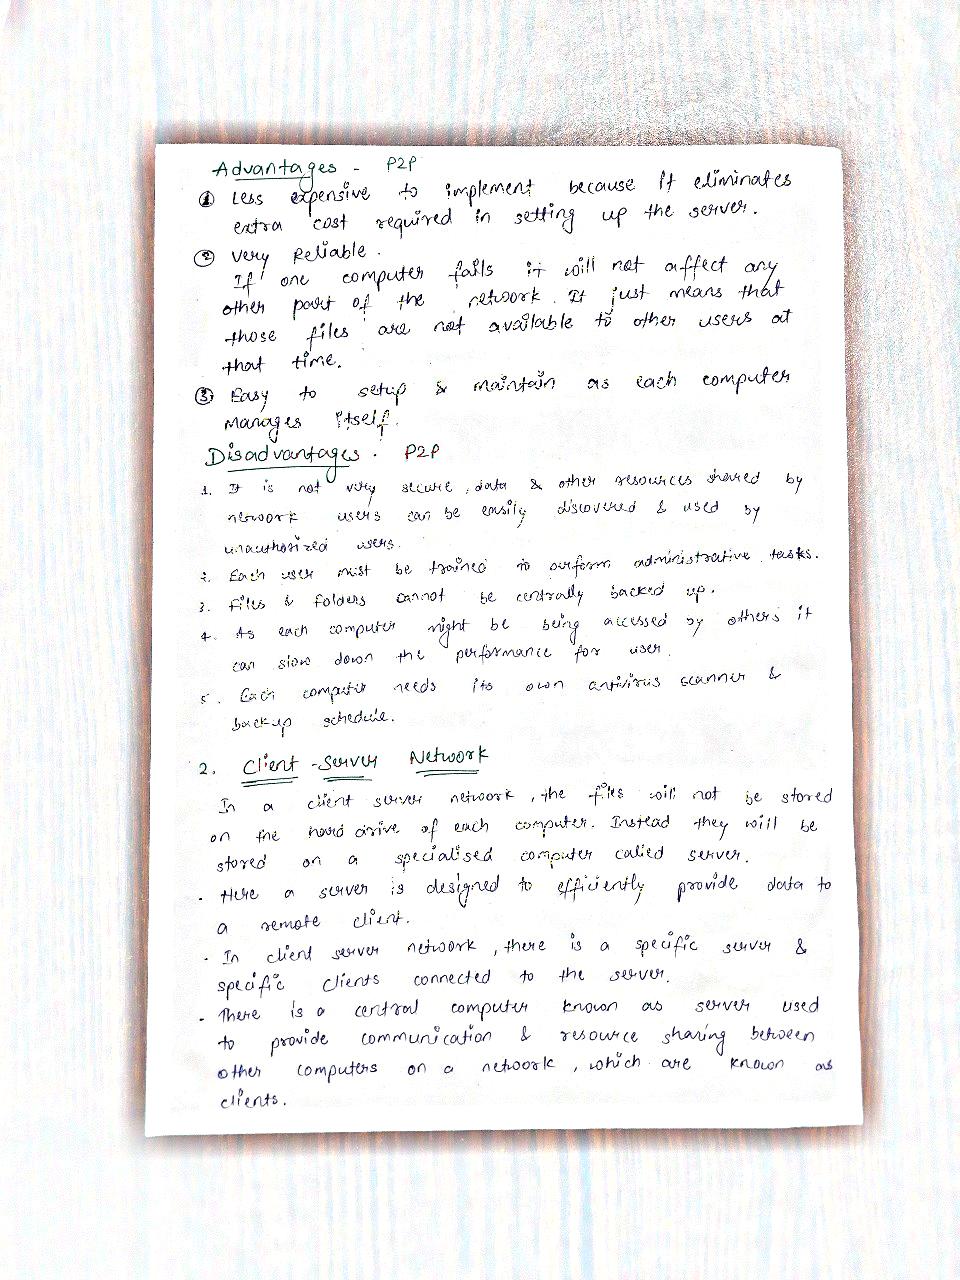 Advantages - P2P
① Less expensive to implement because it eliminates
extra cost required in setting up the server.
② Very Reliable.
If one computer fails it will not affect any
other part of the network. It just means that
those files are not available to other users at
that time.
③ Easy to setup & maintain as each computer
manages itself.
Disadvantages. P2P
1. It is not very secure, data & other resources shared by
network users can be easily discovered & used by
unauthorized users.
2. Each user must be trained to perform administrative tasks.
3. Files & folders cannot be centrally backed up.
4. As each computer might be being accessed by others it
can slow down the performance for user.
5. Each computer needs its own antivirus scanner &
backup schedule.
2. Client-Server Network
In a client server network, the files will not be stored
on the hard drive of each computer. Instead they will be
stored on a specialised computer called server.
. Here a server is designed to efficiently provide data to
a remote client.
. In client server network, there is a specific server &
specific clients connected to the server.
. There is a central computer known as server used
to provide communication & resource sharing between
other computers on a network, which are known as
clients.